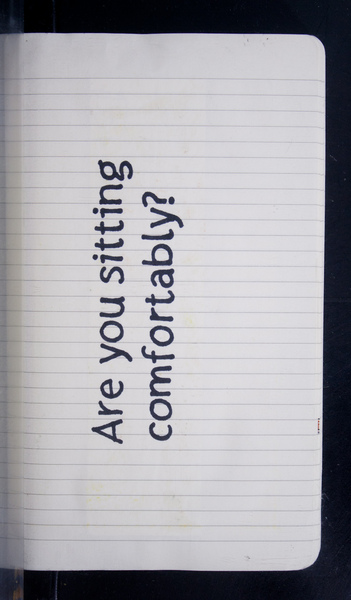 Are you sitting
comfortably?